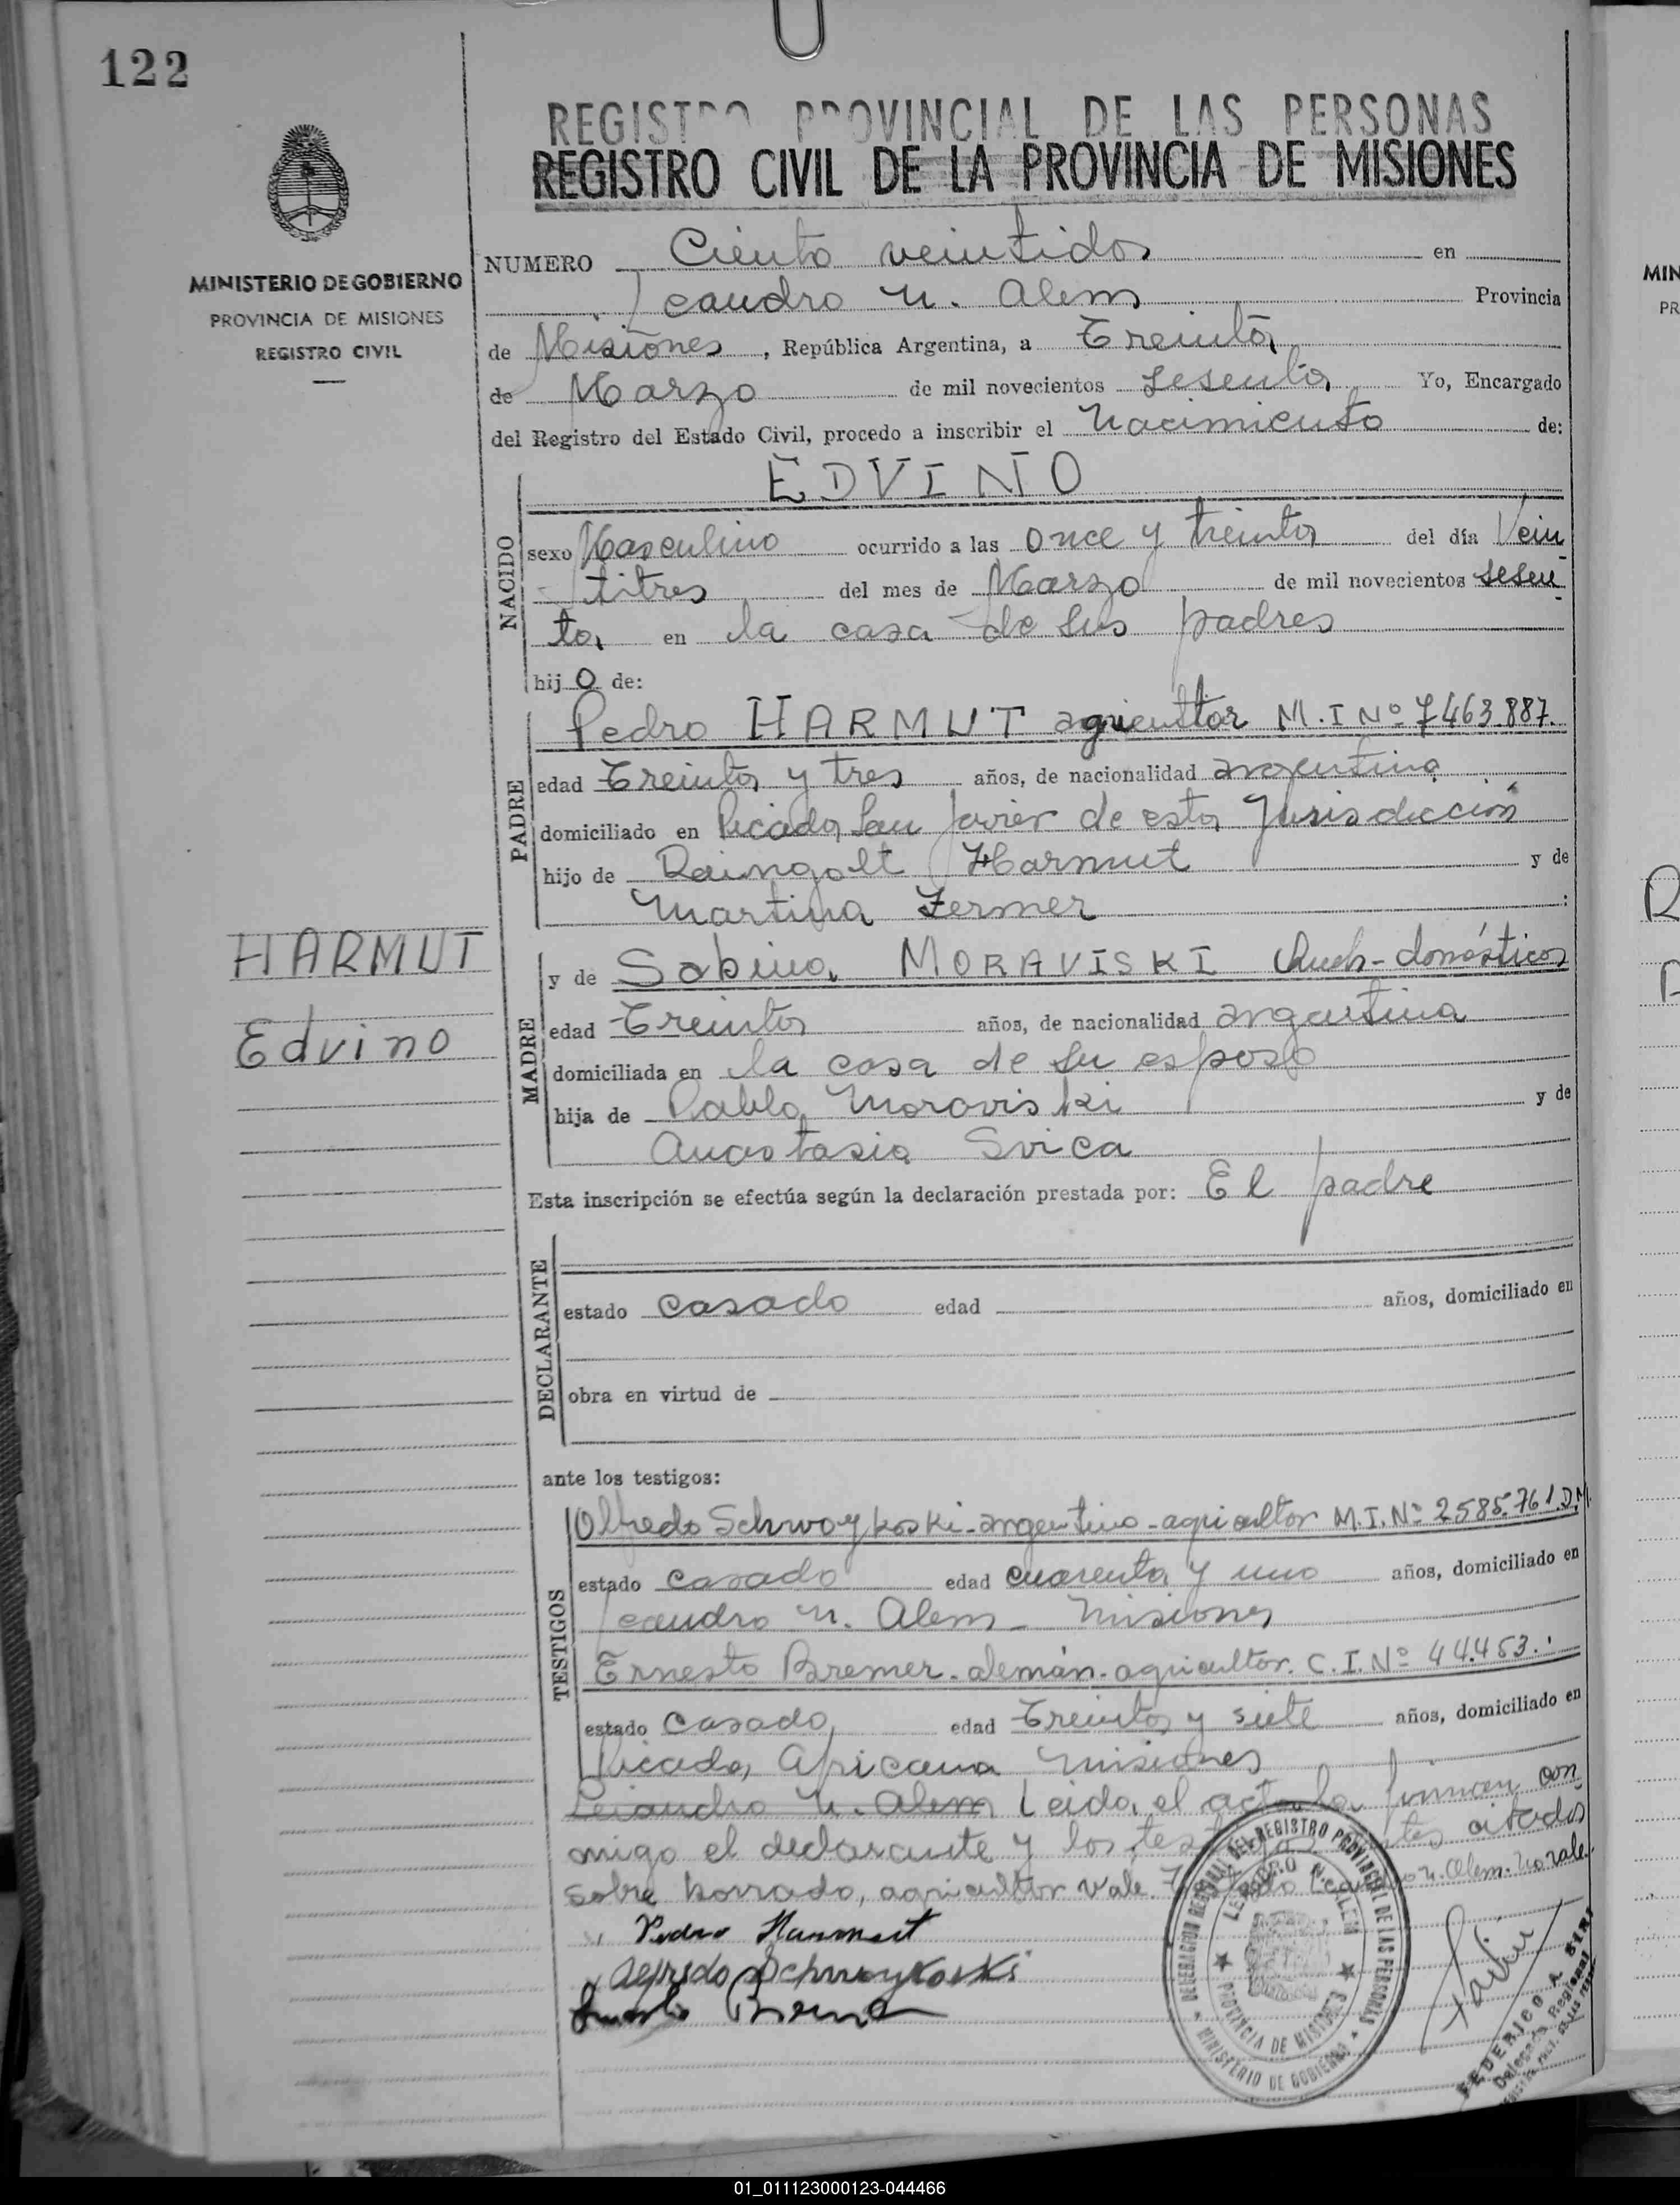 122
REGISTRO PROVINCIAL DE LAS PERSONAS
REGISTRO CIVIL DE LA PROVINCIA DE MISIONES
MINISTERIO DE GOBIERNO
PROVINCIA DE MISIONES
REGISTRO CIVIL
NUMERO Ciento veintidos en
Leandro N. Alem Provincia
de Misiones, República Argentina, a Treinta
de Marzo de mil novecientos sesenta Yo, Encargado
del Registro del Estado Civil, procedo a inscribir el Nacimiento de:
NACIDO
EDVINO
sexo Masculino ocurrido a las once y treinta del día Vein
titres del mes de Marzo de mil novecientos sesen
ta en la casa de sus padres
hijo de:
PADRE
Pedro HARMUT agricultor M.I Nº 7463.887.
edad Treinta y tres años, de nacionalidad argentina
domiciliado en Picada San Javier de esta Jurisdicción
hijo de Raingolt Harmut y de
Martina Zermer :
HARMUT
Edvino
MADRE
y de Sabina MORAVISKI Queh-domésticos
edad Treinta años, de nacionalidad argentina
domiciliada en la casa de su esposo
hija de Pablo Moroviski y de
Anastasia Svica
Esta inscripción se efectúa según la declaración prestada por: El padre
DECLARANTE
estado casado edad años, domiciliado en
obra en virtud de
ante los testigos:
TESTIGOS
Olfredo Schwoykoski-argentino-agricultor M.I.Nº 2585.761.D.M.
estado casado edad cuarenta y uno años, domiciliado en
Leandro N. Alem - Misiones
Ernesto Bremer-alemán-agricultor. C.I.Nº 44.453.
estado casado edad Treinta y siete años, domiciliado en
Picada Africana Misiones
Leandro N. Alem Leida el acta la firman con
migo el declarante y los citados
sobre borrado, agricultor vale. N. Alem. No vale.
Pedro Harmut
Alfredo Schwoykoski
Ernesto Bremer
DELEGACION REGIONAL DEL REGISTRO PROVINCIAL DE LAS PERSONAS
LEANDRO N. ALEM
PROVINCIA DE MISIONES
MINISTERIO DE GOBIERNO
FEDERICO A.
Delegado Regional
MIN
PR
01_011123000123-044466